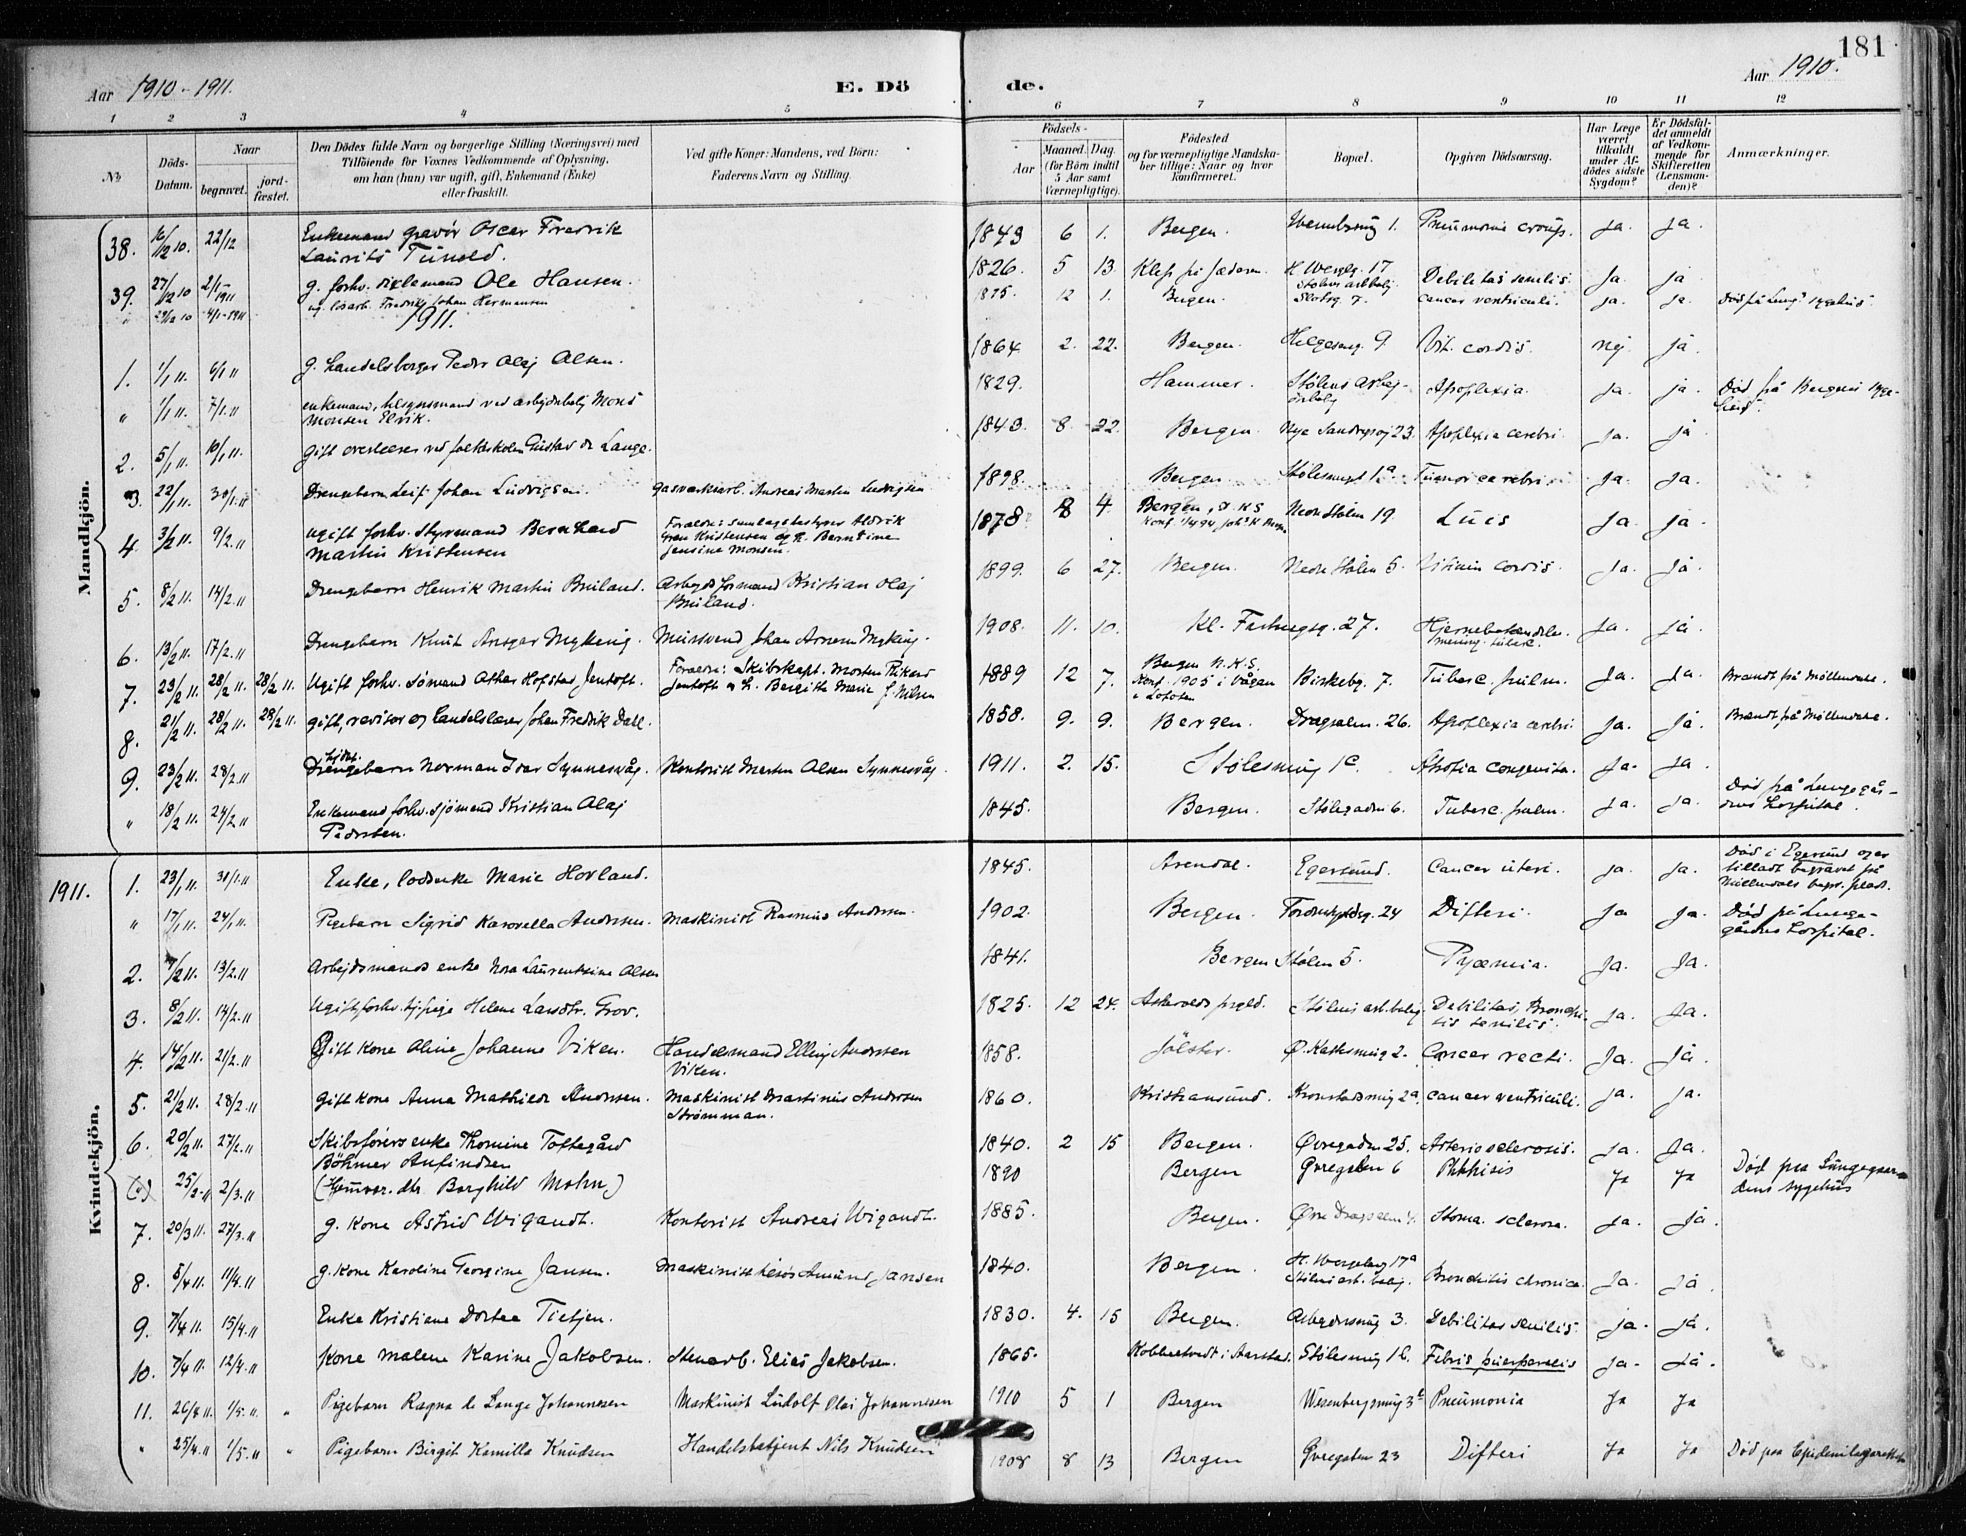 181
Aar 1910-1911.
E. Dö
de.
Aar 1910.
1 2 3 4 5 6 7 8 9 10 11 12
№
Döds-Datum.
Naar
begravet.
jord-fæstet.
Den Dödes fulde Navn og borgerlige Stilling (Næringsvei) med
Tilföiende for Voxnes Vedkommende af Oplysning,
om han (hun) var ugift, gift, Enkemand (Enke)
eller fraskilt.
Ved gifte Koner: Mandens, ved Börn:
Faderens Navn og Stilling.
Födsels-
Aar
Maaned. Dag.
(for Börn indtil
5 Aar samt
Værnepligtige).
Födested
og for værnepligtige Mandska-
ber tillige: Naar og hvor
konfirmeret.
Bopæl.
Opgiven Dödsaarsag.
Har Læge
været
tilkaldt
under Af-
dödes sidste
Sygdom?
Er Dödsfal-
det anmeldt
af Vedkom-
mende for
Skifteretten
(Lensman-
den)?
Anmærkninger.
Mandkjön.
38. 16/12 10. 22/12 Enkemand gravör Oscar Fredrik 1849 6 1. Bergen. 1. Pneumonia croup. Ja. Ja.
Laurits Tunold.
39. 27/12 10 2/1-1911 g. forhv. Ole Hansen. 1826. 5 13. Klep på Jæderen H. Wergl. 17 Debilitas senilis. Ja. ja
" 29/12 10 4/1-1911 ug. løsarb. Fredrik Johan Hermansen 1875. 12 1. Bergen. Slotsg. 7. cancer ventriculi. ja. ja.
1911.
1. 1/1 11. 6/1 11 g. handelsborger Peder Olaj Olsen. 1864 2. 22. Bergen. Helgesens. 9. Vit. cordis. Nej Ja.
" 1/1 11. 7/1.11 enkemand, tilsynsmand ved arbejderbolig Mons 1829. Hammer. Stølens arbej- Apoplexia. Ja. ja. Død på Bergens syge-
Monsen Elvik. derbolig
2. 5/1 11. 10/1 11. Gift overlærer ved folkeskolen Gustav de Lange. 1843. 8 22. Bergen. Nye Sandvigsvej 23. Apoplexia cerebri. Ja. ja
3. 22/1 11. 30/1.11 Drengebarn Leif Johan Ludvigsen. Gasverksarb. Andreas Martin Ludvigsen 1898. Bergen. Stølesmug 1a. Tumor cerebri Ja. Ja.
4. 3/2 11. 9/2.11 Ugift forhv. Styrmand Bernhard 1878 8 4. Bergen, Nedre Stølen 19. Luis Ja. ja.
Martin Kristensen Kristensen og h. Berntine
Jensine Monsen.
5. 8/2 11. 14/2.11 Drengebarn Henrik Martin Bruland. Arbejdsformand Kristian Olaj 1899. 6 27. Bergen. Nedre Stølen 5. Vitium cordis. Ja. Ja.
Bruland.
6. 13/2 11. 17/2.11 Drengebarn Knut Ansgar Myking. Murssvend Johan Arnem Myking. 1908. 11. 10. Kl. 27. Hjernebetændelse. Ja. ja
7. 23/2 11. 28/2 11. 28/2 11. Ugift forhv. Sømand Asthar Hofstad Jentoft. Forældre: Skibskapt. Morten Rikard 1889 12 7. Bergen N.K.S. Birkebg. 7. Tuberc. pulm. Ja. Ja. Brændt på Møllendal.
Jentoft & h. Bergitte Marie f. Nilsen Konf. 1905 i Vågan
i Lofoten
8. 21/2 11. 28/2 11. 28/2 11. gift, revisor og handelslærer Johan Fredrik Dahl. 1858. 9. 9. Bergen. Dragsalm. 26. Apoplexia cerebri. Ja. Ja. Brændt på Møllendal.
9. 23/2 11. 28/2.11 Drengebarn Norman Ivar Synnesvåg. Kontorist Martin Olsen Synnesvåg. 1911. 2. 15. Stølesmug 1c. Atrofia congenita. Ja. Ja.
" 18/2 11. 24/2.11 Enkemand forhv. sjømand Kristian Olaj 1845. Bergen. Stølegaden 6. Tuberc. pulm. Ja. Ja. Død på Lungegår-
Pedersen. dens hospital.
Kvindekjön.
1911. 1. 23/1 11. 31/1.11 Enke, Marie Hovland. 1845. Arendal. Egersund. Cancer uteri. Ja. Ja. Død i Egersund og er
tilladt begravet på
Møllendals begr. plads.
" 17/1 11. 24/1 11. Pigebarn Sigrid Andersen. Maskinist Rasmus Andersen. 1902. Bergen. 24 Difteri. Ja Ja. Død på Lunge-
gårdens hospital.
2. 7/2 11. 13/2.11 Arbejdsmands enke Nora Laurentine Olsen 1841. Bergen Stølen 5. Pyæmia. Ja. Ja.
3. 8/2 11. 14/2.11 Ugift, forhv. tj. pige Helene Landtr. Grov. 1825. 12 24. Askevold prgld. Stølens arb. bolig Debilitas, Bronchi- Ja. Ja.
tis senilis.
4. 14/2 11. 21/2.11 Gift kone Oline Johanne Viken. Handelsmand Elling Andersen 1858. Jølster. Ø. 2. Cancer recti. Ja. Ja
Viken.
5. 21/2 11. 28/2.11 Gift kone Anna Mathilde Andersen. Maskinist Martinus Andersen 1860. Kristiansund. 2a. cancer ventriculi. Ja. Ja.
Strømman.
6. 20/2 11. 27/2.11 Skibsførers enke Thomine Toftegård 1840. 2 15 Bergen. Øvregaden 25. Arteriosclerosis. Ja. Ja.
Böhmer Anfindsen
25/2-11 2/3.11 (Hjemvær. dtr Borghild Mohn) 1890 Bergen Øvregaten 6 Phthisis Ja Ja Død paa Lungegaar-
dens sygehus
7. 20/3 11. 27/3.11 g. kone Astrid Wigandt. Kontorist Andreas Wigandt. 1885. Bergen. Øvre Dragsalm. Ja. Ja.
8. 5/4 11. 11/4.11 g. kone Karoline Georgine Jansen. Maskinist Amund Jansen 1840. Bergen. H. Wergelg. 17a Bronchitis chronica. Ja. Ja
Stølens arb. bolig.
9. 7/4 11. 15/4.11 Enke Kristiane Dortea Tietjen. 1830. 4. 15 Bergen. 3. Debilitas senilis. Ja. Ja.
10. 7/4 11. 12/4.11 Kone Malene Karine Jakobsen. Stenarb. Elias Jakobsen. 1865. i Aarstad. Stølesmug 1b. Febris puerperalis Ja. Ja.
11. 26/4 11. 1/5.11. " Pigebarn Ragna de Lange Johannesen Maskinist Ludolf Olai Johannesen 1910 5 1 Bergen Wesenbergsmug 3b Pneumonia Ja Ja
" 25/4.11 1/5.11 " Pigebarn Birgit Kamilla Knudsen Handelsbetjent Nils Knudsen 1908 8 13 Bergen Øvregaten 23 Difteri Ja Ja Død paa